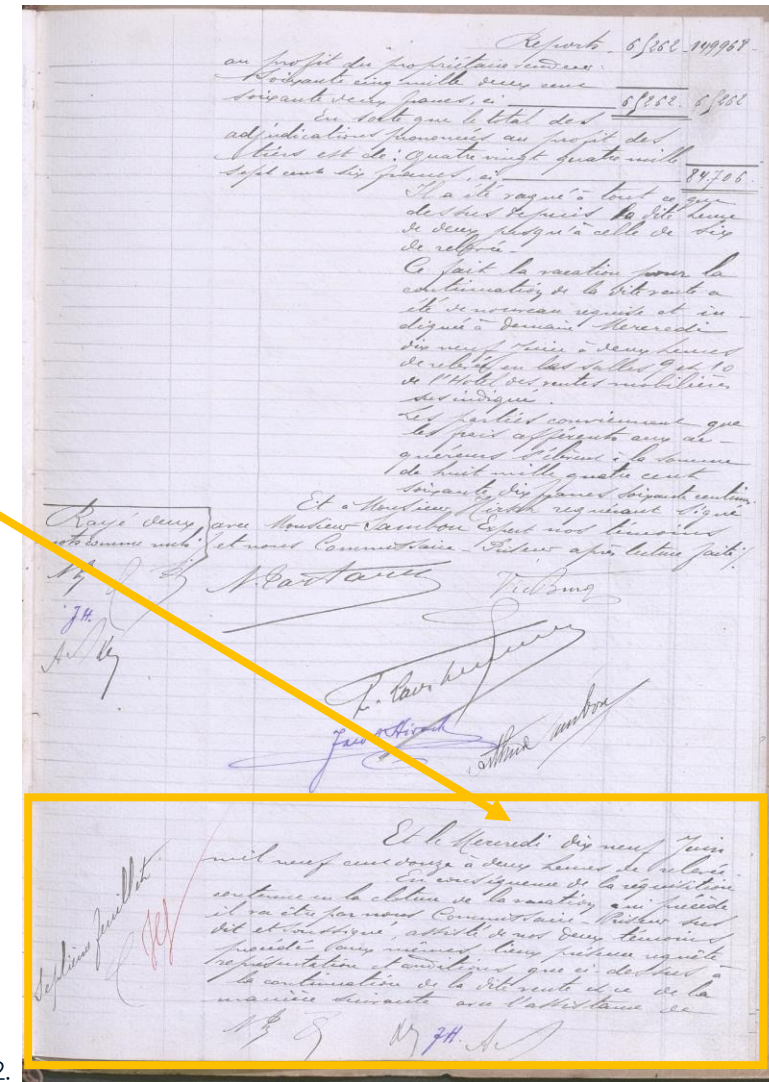 Reports - 65262 - 149968 -
au profit des propriétaires vendeurs.
Soixante cinq mille deux cent
soixante deux francs, ci 65262. 65262
En sorte que le total des
adjudications prononcées au profit des
tiers est de : quatre vingt quatre mille
sept cent six francs, ci 84.706.
Il a été vaqué à tout ce que
dessus depuis la dite heure
de deux jusqu'à celle de six
de relevée -
Ce fait la vacation pour la
continuation de la dite vente a
été de nouveau requise et in-
diquée à demain Mercredi
dix neuf Juin à deux heures
de relevée en les salles 9 et 10
de l'Hôtel des ventes mobilières
sus indiqué.
Les parties conviennent que
les frais afférents aux ac-
quéreurs s'élèvent à la somme
de huit mille quatre cent
soixante dix francs soixante centimes
Et a Monsieur Hirsch requérant signé
avec Monsieur Sambon Expert nos témoins
et nous Commissaire-Priseur après lecture faite /.
Rayé deux
mots comme nuls
J.H.
Jacob Hirsch
Arthur Sambon
Et le Mercredi dix neuf Juin
mil neuf cent douze à deux heures de relevée
En conséquence de la requisition
contenue en la cloture de la vacation qui précède
il va être par nous Commissaire-Priseur sus
dit et soussigné, assisté de nos deux témoins
procédé aux mêmes lieux présence requête
représentation et conditions que ci dessus à
la continuation de la dite vente et ce de la
manière suivante avec l'assistance de
Septième feuillet
J.H.
2.